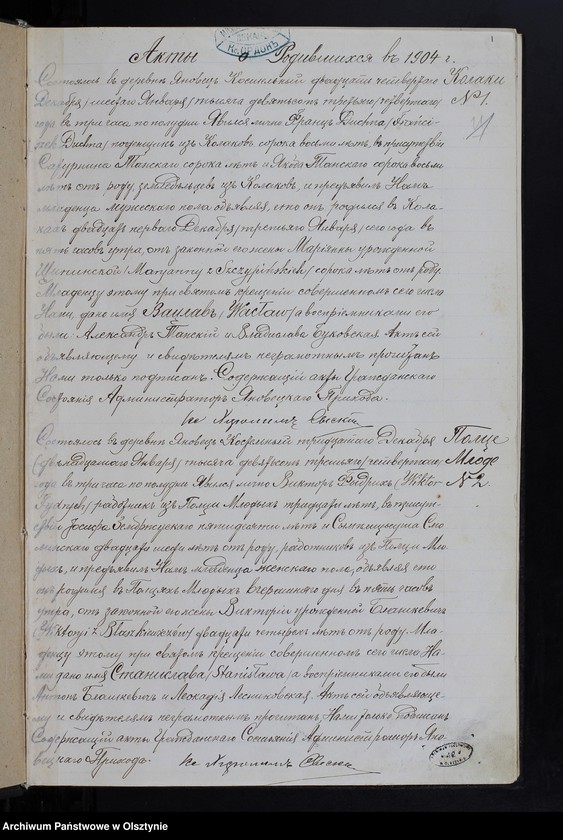 Акты о Родившихся въ 1904 г.
1
Колаки
№ 1.
Состоялось въ деревнѣ Яновецъ Косцельный двадцать четвертаго
Декабря /шестаго Января/ тысяча девятьсот третьяго /четвертаго/
года въ три часа по полудни. Явился лично Францъ Duchna /Franci-
szek Duchna/ изъ Колаковъ сорока восьми лѣтъ, въ присутствіи
Танскаго сорока лѣтъ и Якова Танскаго сорока восьми
лѣтъ отъ роду земледѣльцевъ изъ Колаковъ, и предъявилъ Намъ
младенца мужескаго пола объявляя, что онъ родился въ Кола-
кахъ двадцать перваго Декабря /третьяго Января/ сего года въ
пять часовъ утра, отъ законной его жены Маріянны урожденной
/Maryanny z / сорока лѣтъ отъ роду.
Младенцу этому при святомъ крещеніи совершенномъ сего числа
Нами, дано имя Вацлавъ /Wacław/ а воспріемниками его
были: Александръ Танскій и Владислава Буковская. Актъ сей
объявляющему и свидѣтелямъ неграмотнымъ прочитанъ
Нами только подписанъ. Содержащій акты Гражданскаго
Состоянія Администраторъ Яновецкаго Прихода.
Кс
Полце
Млоде
№ 2.
Состоялось въ деревнѣ Яновецъ Косцельный тридцатаго Декабря
/двѣнадцатаго Января/ тысяча девятьсотъ третьяго /четвертаго/
года въ три часа по полудни. Явился лично Викторъ /Wiktor
/ работникъ изъ Полцы Млодыхъ тридцати лѣтъ, въ присут-
ствіи Іосифа пятидесяти лѣтъ и
двадцати лѣтъ отъ роду, работниковъ изъ Полцы Мло-
дыхъ, и предъявилъ Намъ младенца женскаго пола, объявляя что
онъ родился въ Полцяхъ Млодыхъ вчерашняго дня въ пять часовъ
утра, отъ законной его жены Викторіи урожденной Бланкевичъ
/Wiktoryi z Blankiewiczów/ двадцати четырехъ лѣтъ отъ роду. Мла-
денцу этому при святомъ крещеніи совершенномъ сего числа На-
ми дано имя Станислава /Stanisława/ а воспріемниками его были
Антонъ Бланкевичъ и Леокадія. Актъ сей объявляюще-
му и свидѣтелямъ неграмотнымъ прочитанъ, Нами только подписанъ
Содержащій акты Гражданскаго Состоянія Администраторъ Яно-
вецкаго Прихода.
Кс
Archiwum Państwowe w Olsztynie